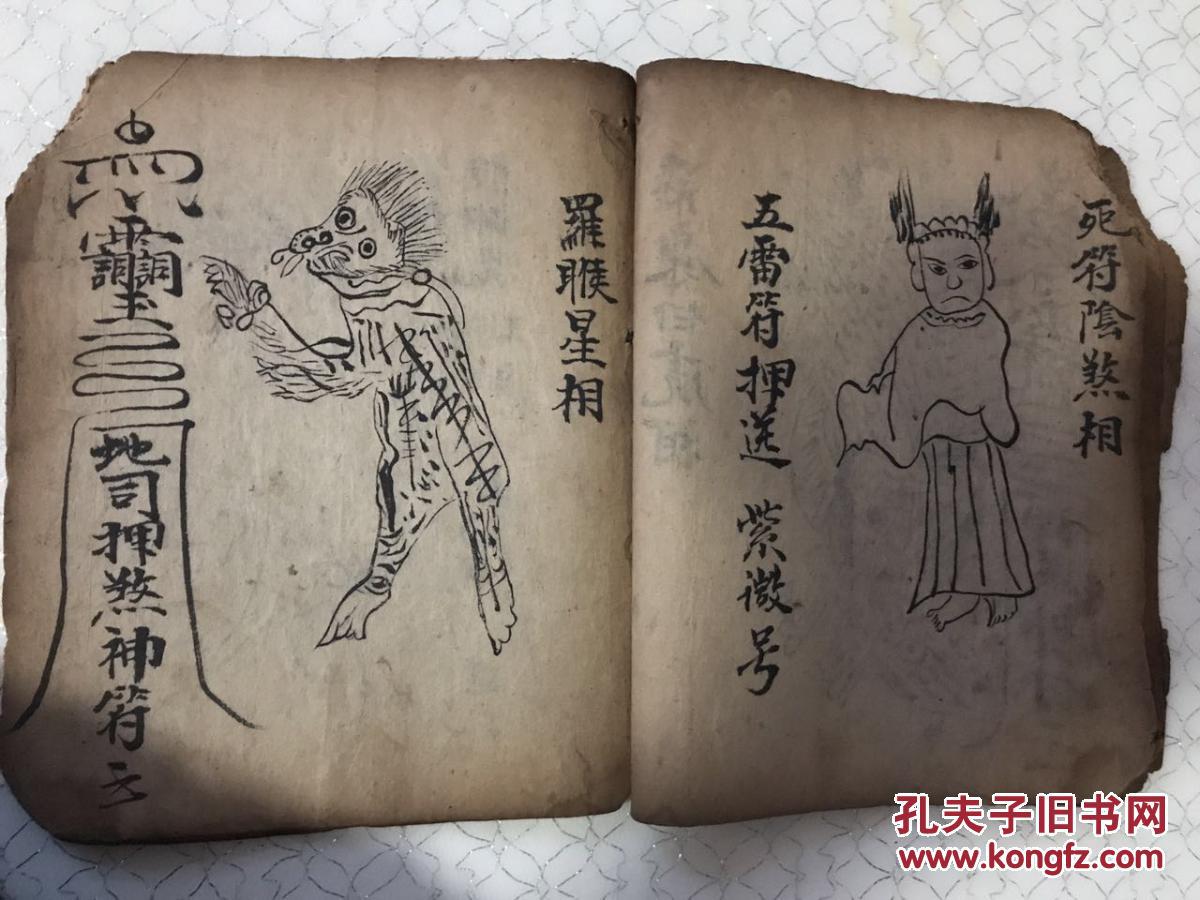 死符陰煞相
五雷符押送 紫微号
羅睺星相
地司押煞神符
孔夫子旧书网
www.kongfz.com